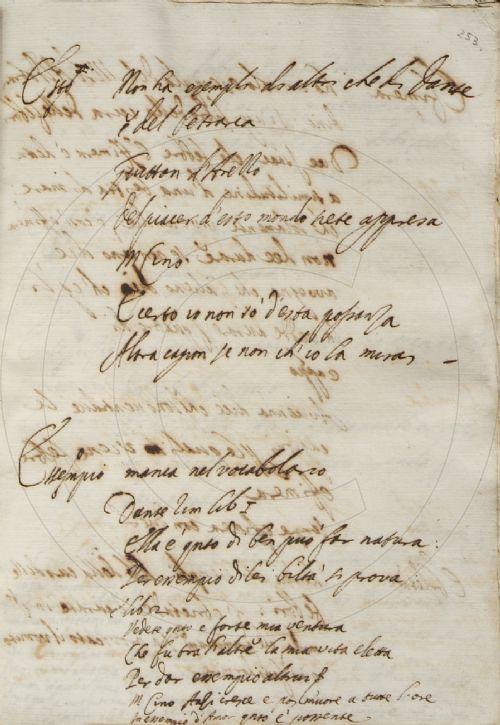 253.
Esto Non ha esempli d'altri che di Dante
e del Petrarca
Guitton d'Arezzo
Del piacer d'esto mondo hete appresa
M Cino
Certo io non so d'esta possanza
Altra cagion se non ch'io la miras
Essempio manca nel vocabolario
Dante Rim lib 1
Ella e qnto di ben può far natura:
Per exempio di lei biltà si prova
lib 2
Vedete qnto e forte mia ventura
Che fu tra l'altre la mia vita eletta
Per dar exempio altrui
M Cino e a tutte l'ore
d'Amor qnto è possente